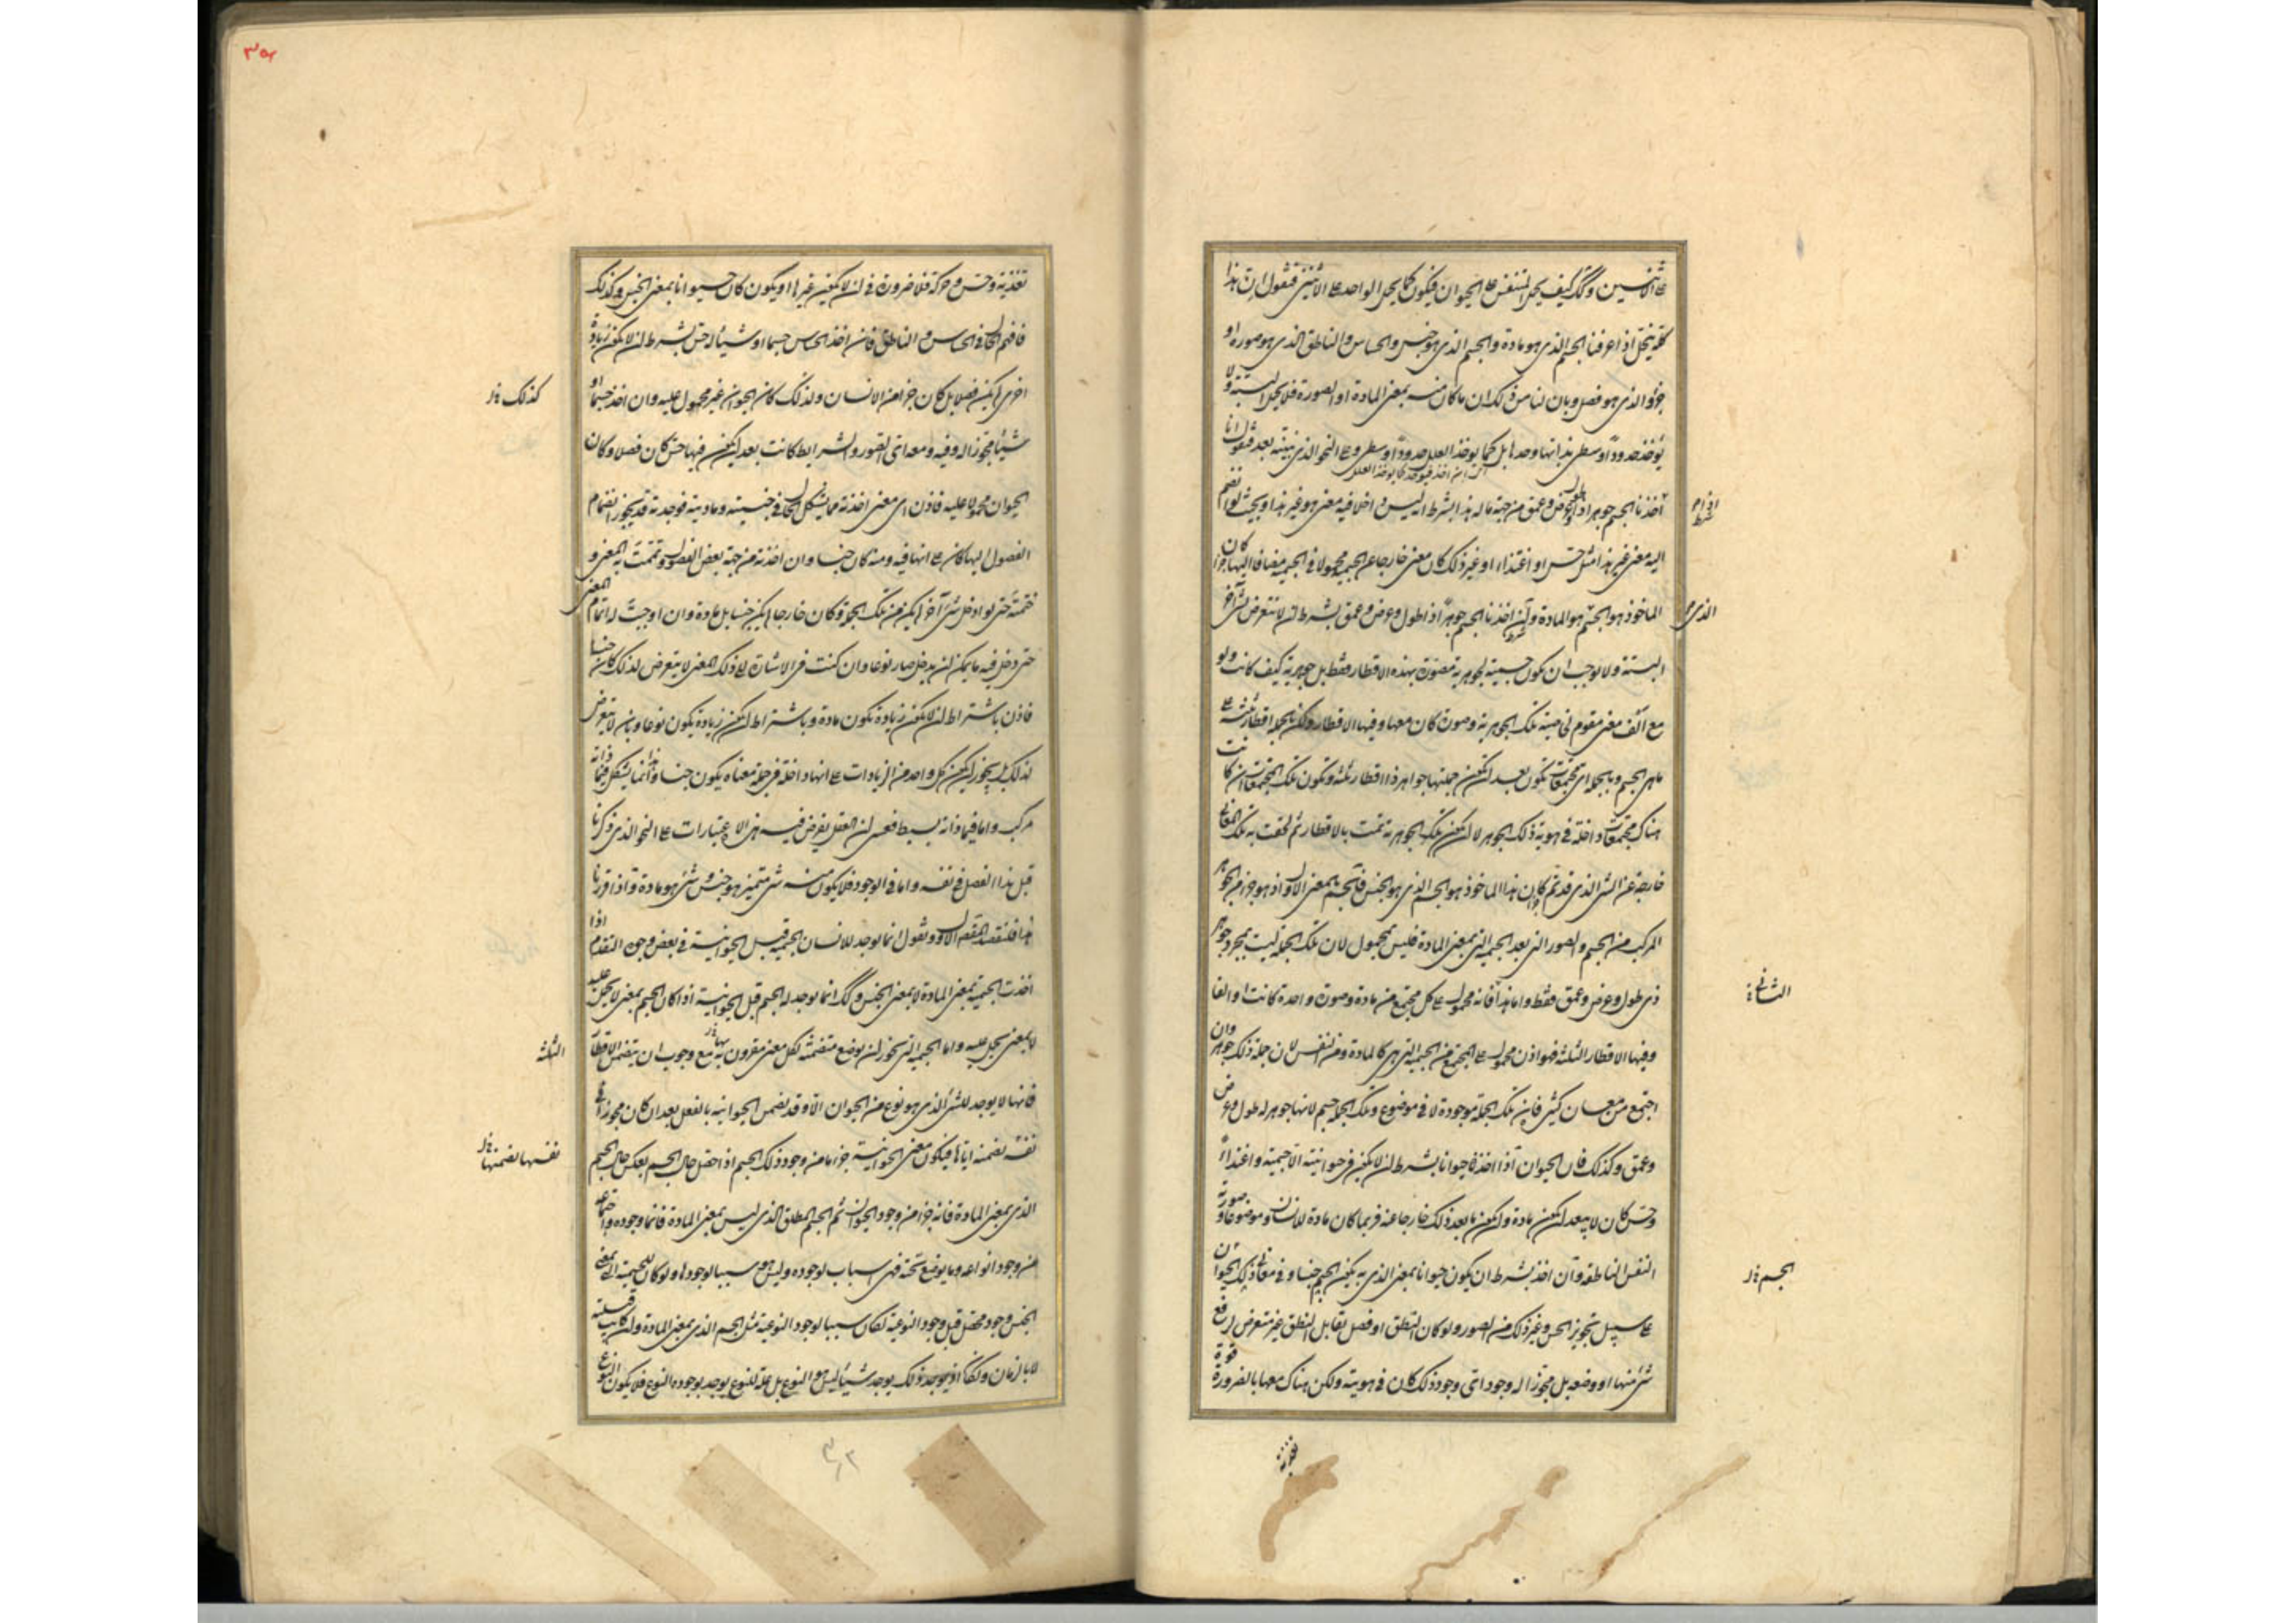 كله ينحل اذا عرفنا الجسم الذي هو مادة والجسم الذي هو جنس والحساس والناطق الذي هو صورة او
جزو والذي هو فصل وبان لنا من ذلك ان ما كان منه بمعنى المادة او الصورة فلا يحمل البتة ولا
يؤخذ حدودا وسطى بذاتها وحدها بل كما يوخذ العلل حدودا وسطى وعلى النحو الذي نبينه بعد فنقول انا
اذا اخذنا الجسم جوهرا ذا طول وعرض وعمق من جهة ما له هذا بشرط انه ليس داخلا فيه معنى هو غير هذا وبحيث لو انضم
اليه معنى غير هذا مثل حس او اغتذاء او غير ذلك كان معنى خارجا عن الجسمية محمولا في الجسمية مضافا اليها كان
الماخوذ هو الجسم هو المادة وان اخذنا الجسم جوهرا ذا طول وعرض وعمق بشرط ان لا نتعرض لشئ آخر
البتة ولا يوجب ان يكون جسميته لجوهرية مصورة بهذه الاقطار فقط بل جوهرية كيف كانت ولو
مع الف معنى مقوم لخاصية تلك الجوهرية وصورة كان معها وفيها الاقطار ولكن للجملة اقطار ثلثة على
ما هي للجسم وبالجملة اي مجتمعات تكون بعد ان يكون جملتها جواهر ذا اقطار ثلثة وتكون تلك المجتمعات ان كانت
هناك مجتمعات داخلة في هوية ذلك الجوهر لا ان يكون تلك الجوهرية تمت بالاقطار ثم لحقت به تلك المعاني
خارجة عن الشئ الذي قد تم كان هذا الماخوذ هو الجسم الذي هو الجنس فالجسم بالمعنى الاول اذ هو جزء من الجوهر
المركب من الجسم والصور التي بعد الجسمية التي بمعنى المادة فليس بمحمول لان تلك الجملة ليست بمجرد جوهر
ذي طول وعرض وعمق فقط واما هذا فانه محمول على كل مجتمع من مادة وصورة واحدة كانت او الفا
وفيها الاقطار الثلثة فهو اذن محمول على المجتمع من الجسمية التي هي كالمادة ومن النفس لان جملة ذلك جوهر وان
اجتمع من معان كثيرة فان تلك الجملة موجودة لا في موضوع وتلك الجملة جسم لانها جوهر له طول وعرض
وعمق وكذلك فان الحيوان اذا اخذ حيوانا بشرط ان لا يكون في حيوانيته الا جسمية واغتذاء
وحس كان لا يبعد ان يكون مادة وان يكون ما بعد ذلك خارجا عنه فربما كان مادة للانسان وموضوعا وصورته
النفس الناطقة وان اخذ بشرط ان يكون حيوانا بالمعنى الذي به يكون الجسم جنسا وفي معاني ذلك الحيوان
على سبيل تجويز الحس وغير ذلك من الصور ولو كان النطق او فصل يقابل النطق غير متعرض لرفع
شئ منها او وضعه بل مجوزا له وجود اي وجود ذلك كان في هويته ولكن هناك معها بالضرورة قوة
الثاني
الجسم
تغذية وحس وحركة فلا ضرورة في ان لا يكون غيرها او يكون كان حيوانا بمعنى الجنس وكذلك
فافهم الحال في الحساس والناطق فان اخذ الحساس جسما او شيئا له حس بشرط ان لا يكون زيادة
اخرى لم يكن فصلا بل كان جزءا من الانسان ولذلك كان الحيوان غير محمول عليه وان اخذ جسما او
شيئا مجوزا له وفيه ومعه اي الصور والشرايط كانت بعد ان يكون فيها حس كان فصلا وكان
الحيوان محمولا عليه فاذن اي معنى اخذته مما يشكل الحال في جنسيته وماديته فوجدته قد يجوز انضمام
الفصول اليها كان على انها فيه ومنه كان جنسا وان اخذته من جهة بعض الفصول وتممت به المعنى و
ختمته حتى لو ادخل شئ آخر لم يكن من تلك الجملة وكان خارجا لم يكن جنسا بل مادة وان اوجبت له تمام المعنى
حتى دخل فيه ما يمكن ان يدخل صار نوعا وان كنت في الاشارة الى ذلك المعنى لا يتعرض لذلك كان جنسا
فاذن باشتراط ان لا يكون زيادة يكون مادة وباشتراط ان يكون زيادة يكون نوعا وبان لا يتعرض
لذلك بل يجوز ان يكون كل واحد من الزيادات على انها داخلة في جملة معناه يكون جنسا وهذا انما يشكل فيما ذاته
مركب واما فيما ذاته بسيط فعسى ان العقل يفرض فيه هذه الاعتبارات على النحو الذي ذكرنا
قبل هذا الفصل في نفسه واما في الوجود فلا يكون منه شئ متميز هو جنس وشئ هو مادة واذا قررنا
هذا فلنقصد المقصد الاول ونقول انما يوجد للانسان الجسمية قبل الحيوانية في بعض وجوه التقدم اذا
اخذت الجسمية بمعنى المادة لا بمعنى الجنس وكذلك انما يوجد له الجسم قبل الحيوانية اذا كان الجسم بمعنى لا يحمل عليه
لا بمعنى يحمل عليه واما الجسمية التي يجوز ان يوضع متضمنة لكل معنى مقرون به مع وجوب ان يتضمن الاقطار
فانها لا يوجد للشئ الذي هو نوع من الحيوان الا وقد تضمن الحيوانية بالفعل بعد ان كان مجوزا في
نفسه تضمنه اياها فيكون معنى الحيوانية جزءا ما من وجود ذلك الجسم اذا حصل حال الجسم بعكس حال الجسم
الذي بمعنى المادة فانه جزء من وجود الحيوان ثم الجسم المطلق الذي ليس بمعنى المادة فانما وجوده واجتماعه
من وجود انواعه وما يوضع تحته فهي اسباب لوجوده وليس هو سببا لوجودها ولو كان للجسمية التي بمعنى
الجنس وجود محصل قبل وجود النوعية لكان سببا لوجود النوعية مثل الجسم الذي بمعنى المادة وان كانت قبليته
لا بالزمان ولكان اذ يوجد ذلك يوجد شيئا ليس هو النوع بل علة للنوع يوجد بوجوده النوع فلا يكون النوع
كذلك
الثلثة
نفسها تضمنها